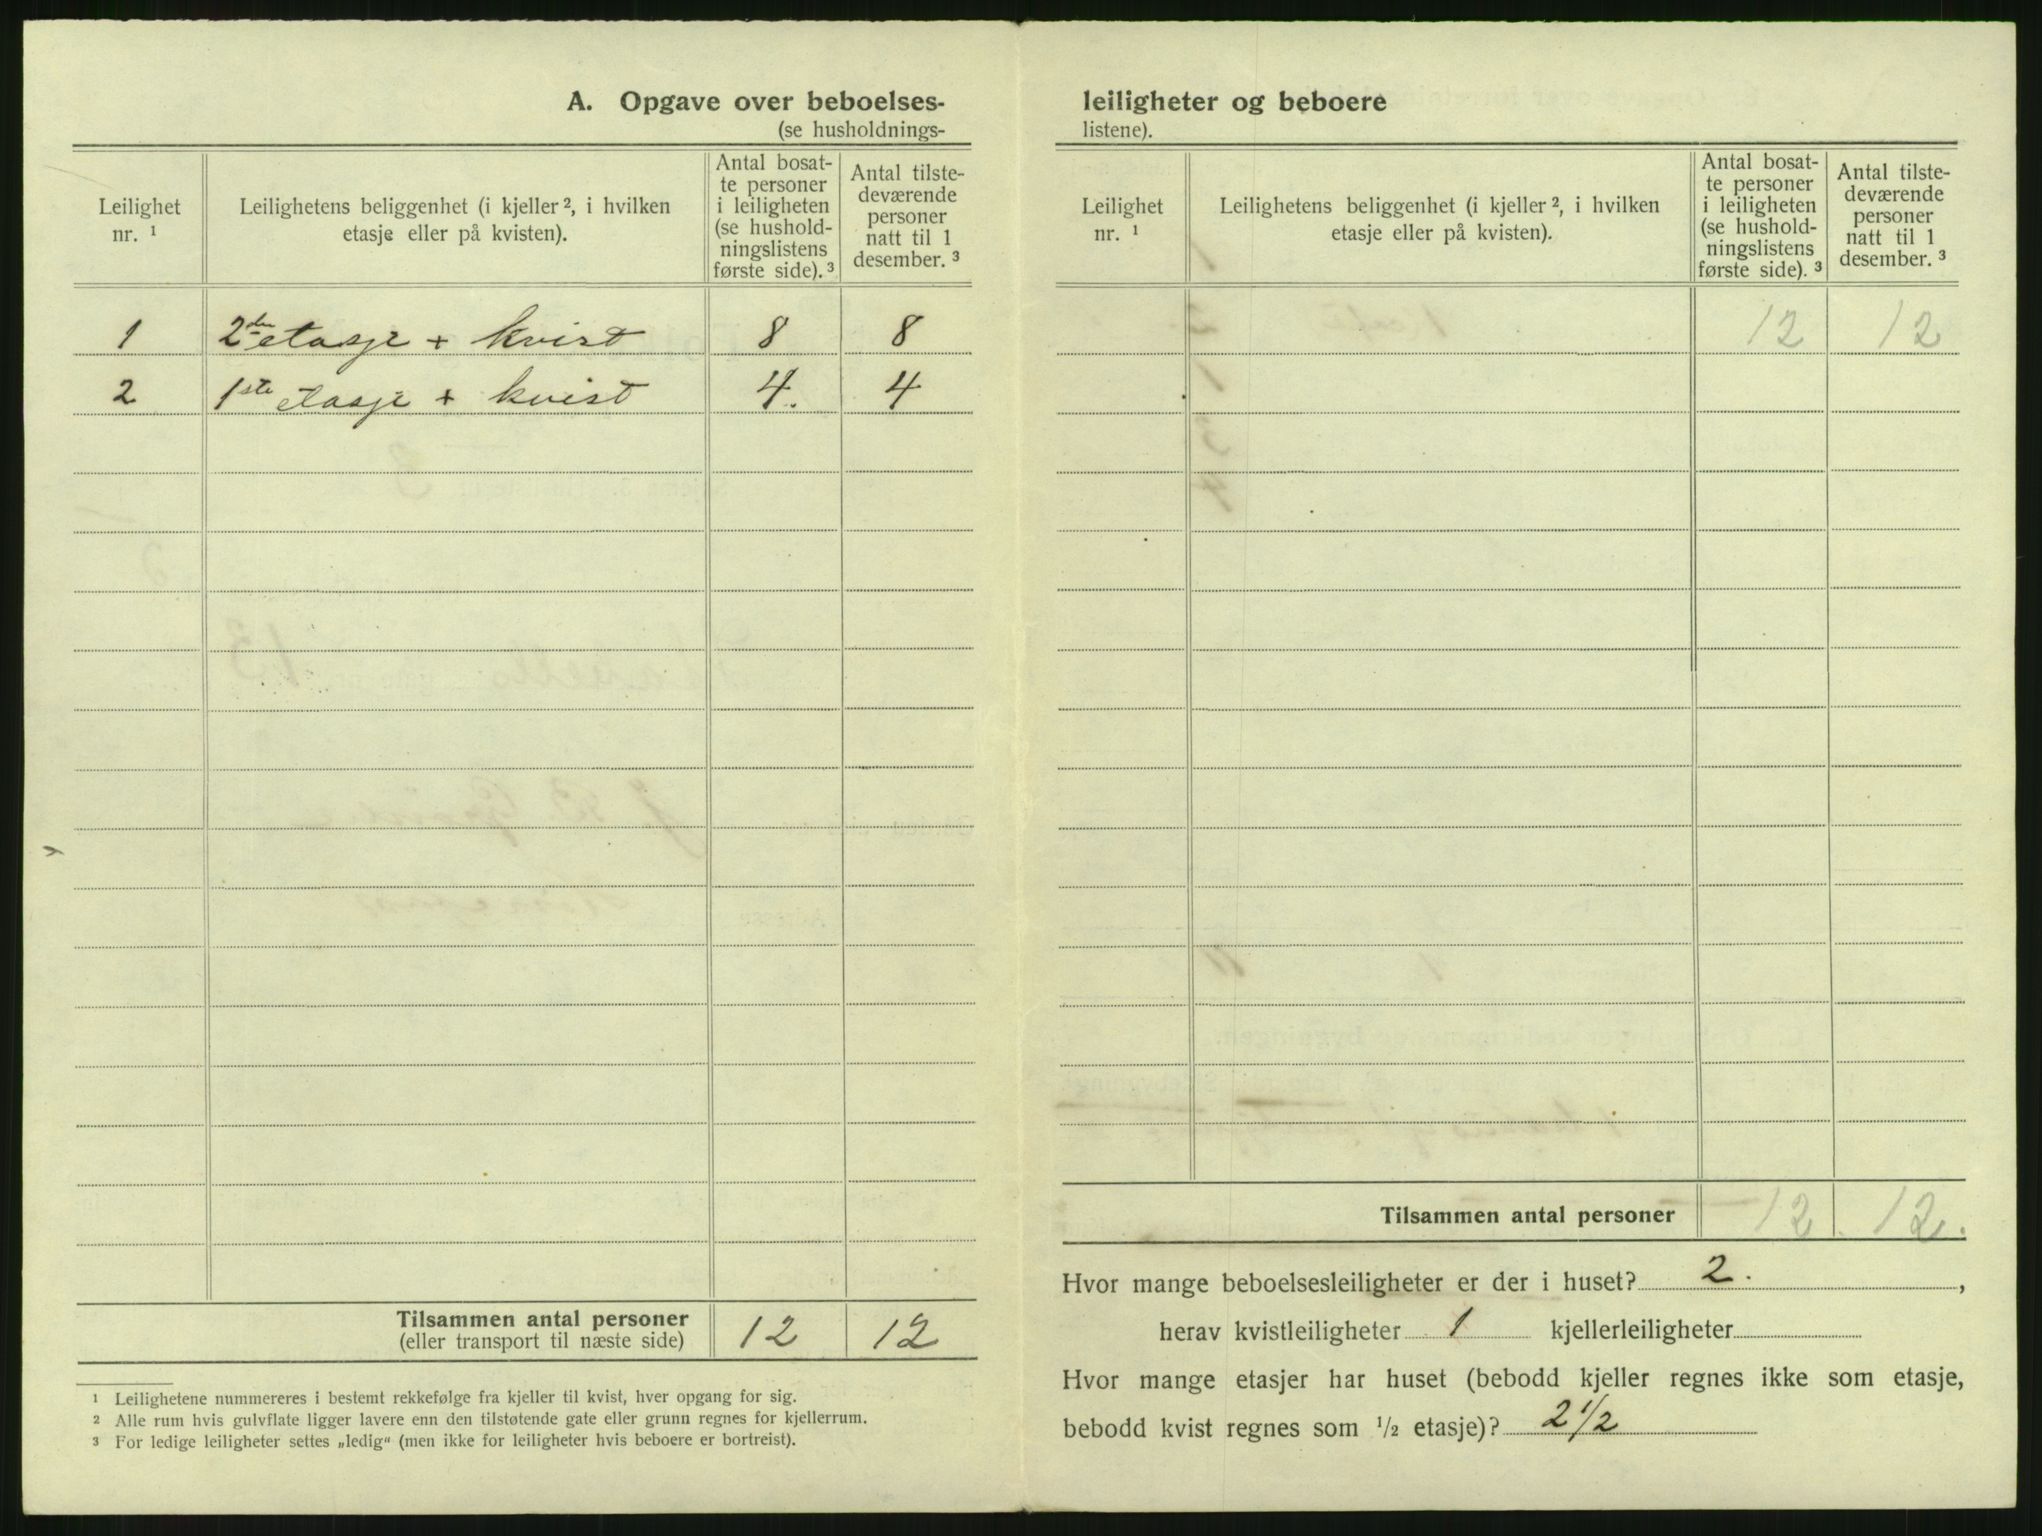 A. Opgave over beboelses-
(se husholdnings-
Leilighet nr. ¹
Leilighetens beliggenhet (i kjeller ², i hvilken
etasje eller på kvisten).
Antal bosat-
te personer
i leiligheten
(se hushold-
ningslistens
første side). ³
Antal tilste-
deværende
personer
natt til 1
desember. ³
1 2den etasje + kvist 8 8
2 1ste etasje + kvist 4. 4
Tilsammen antal personer
(eller transport til næste side) 12 12
¹ Leilighetene nummereres i bestemt rekkefølge fra kjeller til kvist, hver opgang for sig.
² Alle rum hvis gulvflate ligger lavere enn den tilstøtende gate eller grunn regnes for kjellerrum.
³ For ledige leiligheter settes „ledig“ (men ikke for leiligheter hvis beboere er bortreist).
leiligheter og beboere
listene).
Leilighet nr. ¹
Leilighetens beliggenhet (i kjeller ², i hvilken
etasje eller på kvisten).
Antal bosat-
te personer
i leiligheten
(se hushold-
ningslistens
første side). ³
Antal tilste-
deværende
personer
natt til 1
desember. ³
12 12
Tilsammen antal personer 12. 12.
Hvor mange beboelsesleiligheter er der i huset? 2. ,
herav kvistleiligheter 1 kjellerleiligheter
Hvor mange etasjer har huset (bebodd kjeller regnes ikke som etasje,
bebodd kvist regnes som ½ etasje)? 2 1/2